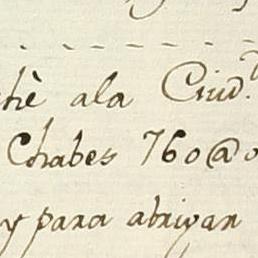 chè ala Ciud.d
Chabes 760@0
y para abrigar